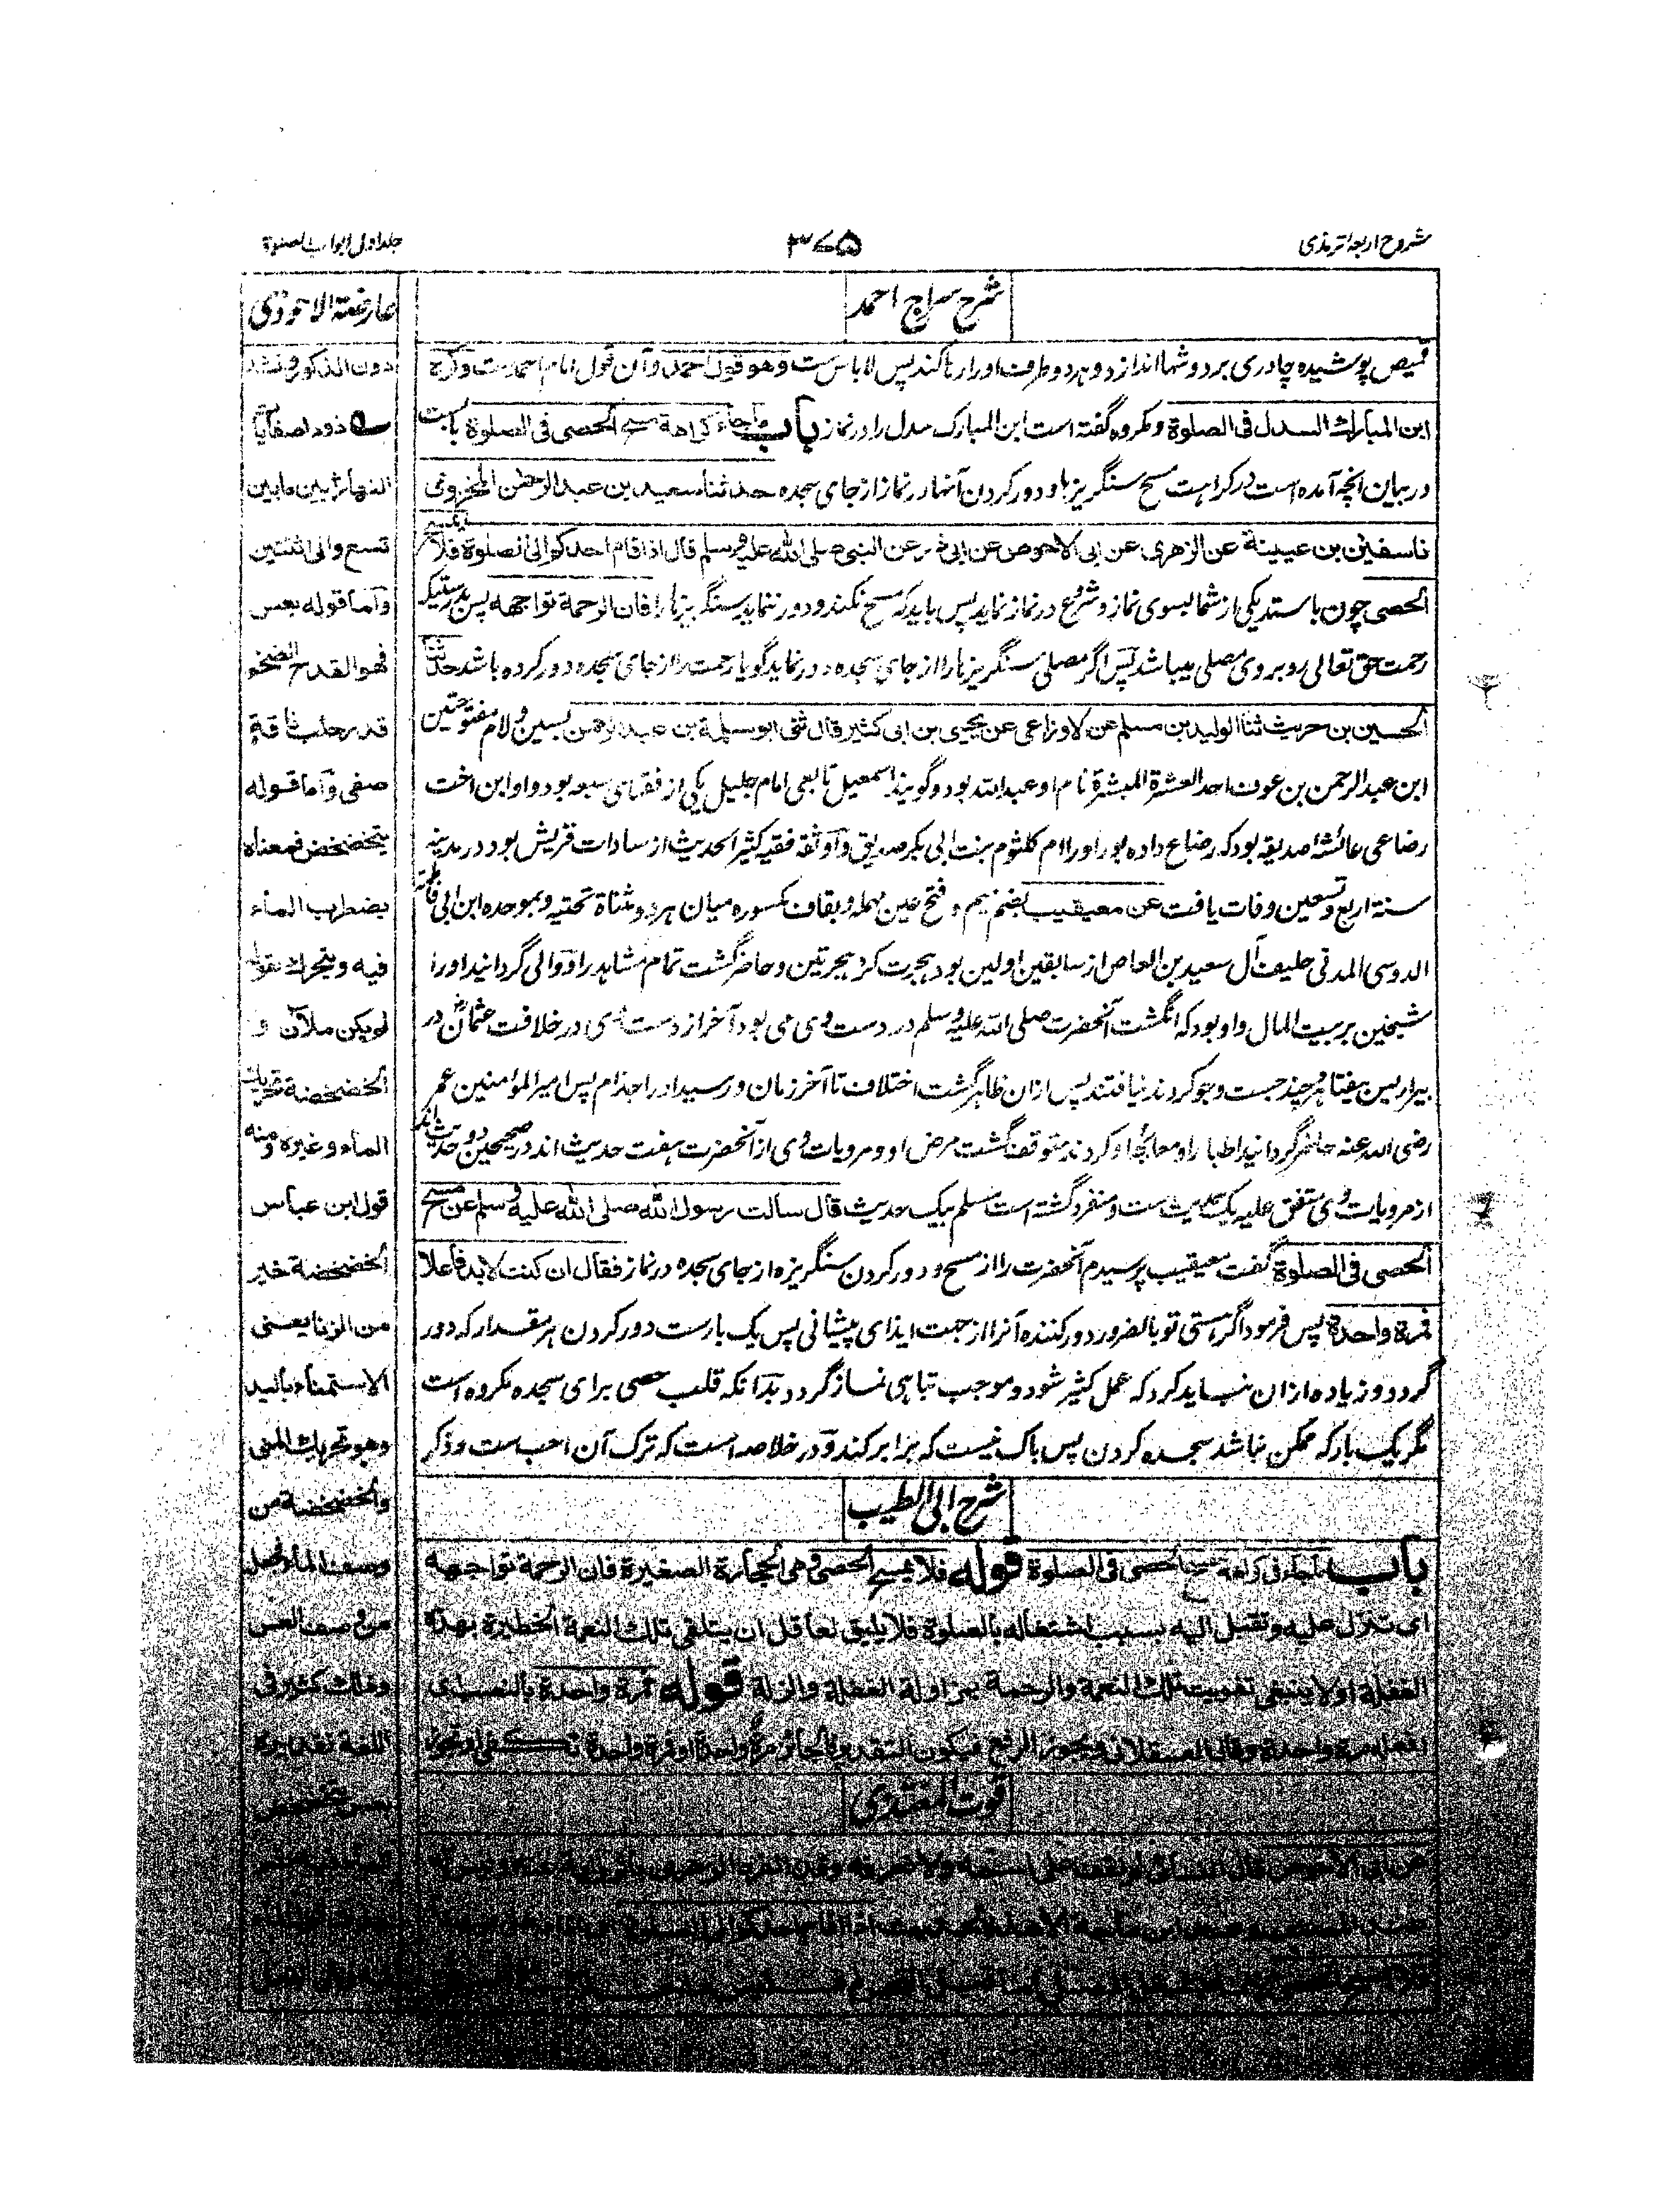 شروح اربعہ ترمذی
۳۷۵
جلد اول ابواب الصلوة
شرح سراج احمد
قمیص پوشیده چادری بر دوشها اندازد و هر دو طرف او را رها کند پس لا باس ست وهو قول احمد وآن قول امام احمد ست وکره
ابن المبارك السدل فی الصلوة ومکروه گفته است ابن المبارک سدل را در نماز باب ماجاء کراهة مسح الحصی فی الصلوة بابیست
در بیان آنچه آمده است در کراهت مسح سنگریزها و دور کردن آنها در نماز از جای سجده حدثنا سعید بن عبد الرحمن المخزومی
ناسفین بن عیینة عن الزهری عن ابی الاحوص عن ابی ذر عن النبی صلی الله علیه وسلم قال اذا قام احدکم الی الصلوة فلا یمسح
الحصی چون باستد یکی از شما بسوی نماز و شروع در نماز نماید پس باید که مسح نکند و دور ننماید سنگریزها را فان الرحمة تواجهه پس بدرستیکه
رحمت حق تعالی روبروی مصلی میباشد پس اگر مصلی سنگریزها را از جای سجده دور نماید گویا رحمت را از جای سجده دور کرده باشد حدثنا
الحسین بن حریث ثنا الولید بن مسلم عن الاوزاعی عن یحیی بن ابی کثیر قال ثنی ابو سلمة بن عبد الرحمن بسین ولام مفتوحتین
ابن عبد الرحمن بن عوف احد العشرة المبشرة نام او عبد الله بود و گویند اسمعیل تابعی امام جلیل یکی از فقهای سبعه بود و او ابن اخت
رضاعی عائشه صدیقه بود که رضاع داده بود او را ام کلثوم بنت ابی بکر صدیق و او ثقه فقیه کثیر الحدیث از سادات قریش بود در مدینه
سنة اربع وتسعین وفات یافت عن معیقیب بضم میم و فتح عین مهمله و بقاف مکسوره میان هر دو مثناة تحتیه و بموحده ابن ابی فاطمه
الدوسی المدنی حلیف آل سعید بن العاص از سابقین اولین بود هجرت کرد هجرتین و حاضر گشت تمام مشاهد را و والی گردانید او را
شیخین بر بیت المال و او بود که انگشت آنحضرت صلی الله علیه وسلم در دست وی می بود آخر از دست وی در خلافت عثمان در
بیر اریس بیفتاد هر چند جست و جو کردند نیافتند پس ازان ظاهر گشت اختلاف تا آخر زمان و رسید او را جذام پس امیر المؤمنین عمر
رضی الله عنه حاضر گردانید اطبا را و معالجه او کردند متوقف گشت مرض او و مرویات وی از آنحضرت هفت حدیث اند در صحیحین دو حدیث اند
از مرویات وی متفق علیه یک حدیث ست و منفرد گشته است مسلم بیک حدیث قال سالت رسول الله صلی الله علیه وسلم عن مسح
الحصی فی الصلوة گفت معیقیب پرسیدم آنحضرت را از مسح و دور کردن سنگریزه از جای سجده در نماز فقال ان کنت لابد فاعلا
فمرة واحدة پس فرمود اگر هستی تو بالضرور دور کننده آنرا از جهت ایذای پیشانی پس یک بار ست دور کردن هر مقدار که دور
گردد و زیاده ازان نباید کرد که عمل کثیر شود و موجب تباهی نماز گردد بدانکه قلب حصی برای سجده مکروه است
مگر یک بار که ممکن نباشد سجده کردن پس باک نیست که برابر کند و در خلاصه است که ترک آن احب ست و ذکر
شرح ابی الطیب
باب ماجاء فی کراهة مسح الحصی فی الصلوة قوله فلا یمسح الحصی وهی الحجارة الصغیرة فان الرحمة تواجهه
ای تنزل علیه وتقبل الیه بسبب اشتغاله بالصلوة فلا یلیق لعاقل ان یتلقی تلك النعمة الخطیرة بهذه
الفعلة او لا ینبغی تفویت تلك النعمة والرحمة بمزاولة الفعلة والزلة قوله فمرة واحدة بالنصب ای
افعل مرة واحدة وقال العسقلانی ویجوز الرفع فیکون التقدیر فالجائز مرة واحدة او فمرة واحدة تکفی او تجوز
قوت المغتذی
عن ابی الاحوص قال
عارضة الاحوذی
دون الذکور فنشد
ذود صفایا
النهار بین مابین
تسع والی اثنتین
واما قوله بعس
فهو القدح الضخم
قد رحلب ناقة
صفی واما قوله
یتخضخض فمعناه
یضطرب الماء
فیه ویتحرك بقوله
لم یکن ملآن و
الخضخضة تحریك
الماء وغیره ومنه
قول ابن عباس
الخضخضة خیر
من الزنا یعنی
الاستمناء بالید
وهو تحریك المنی
والخضخضة من
وصف الماء فجعل
من وصف العس
وذلك کثیر فی
اللغة تقدیره